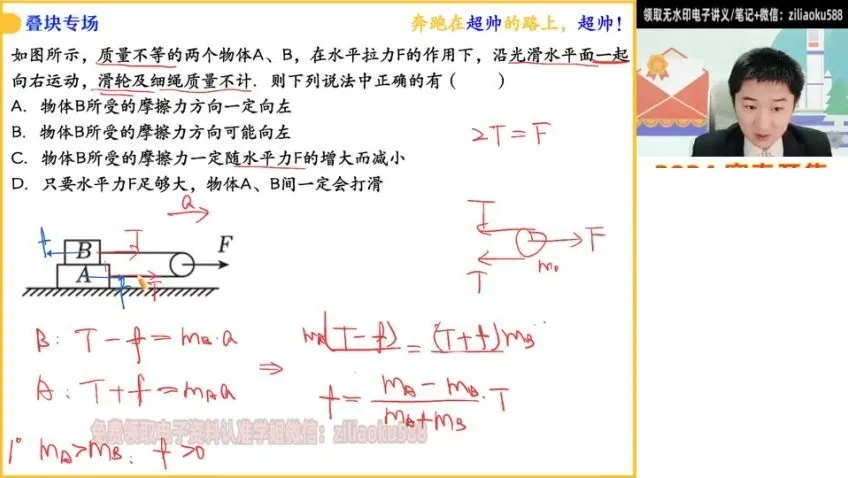 叠块专场
奔跑在超帅的路上，超帅！
领取无水印电子讲义/笔记+微信：ziliaoku588
如图所示，质量不等的两个物体A、B，在水平拉力F的作用下，沿光滑水平面一起
向右运动，滑轮及细绳质量不计．则下列说法中正确的有（　　）
A．物体B所受的摩擦力方向一定向左
B．物体B所受的摩擦力方向可能向左
C．物体B所受的摩擦力一定随水平力F的增大而减小
D．只要水平力F足够大，物体A、B间一定会打滑
2T=F
a
f B T F
A f T
T F
T m₀
B: T-f=mB·a
A: T+f=mAa
⇒ mA(T-f)=(T+f)mB
f=(mA-mB)/(mA+mB)·T
免费领取电子资料认准学姐微信：ziliaoku588
1° mA>mB: f>0